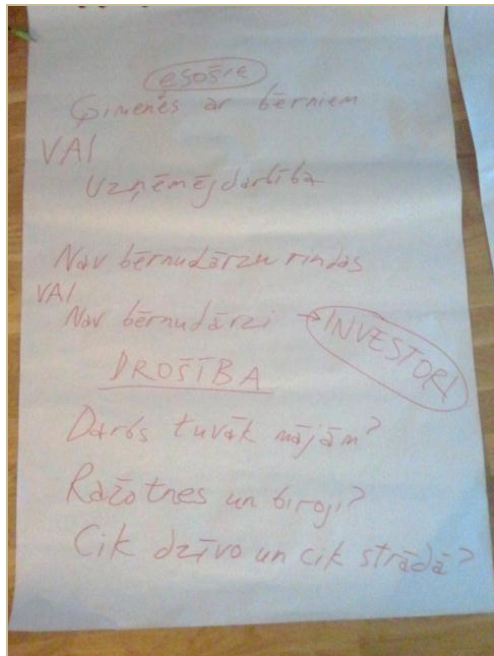 esošie
Ģimenes ar bērniem
VAI
Uzņēmējdarbība
Nav bērnudārzu rindas
VAI
Nav bērnudārzi → INVESTORI
DROŠĪBA
Darbs tuvāk mājām?
Ražotnes un biroji?
Cik dzīvo un cik strādā?